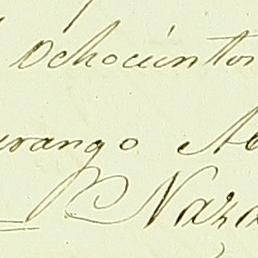 Ochocientos
urango Ab
Naza